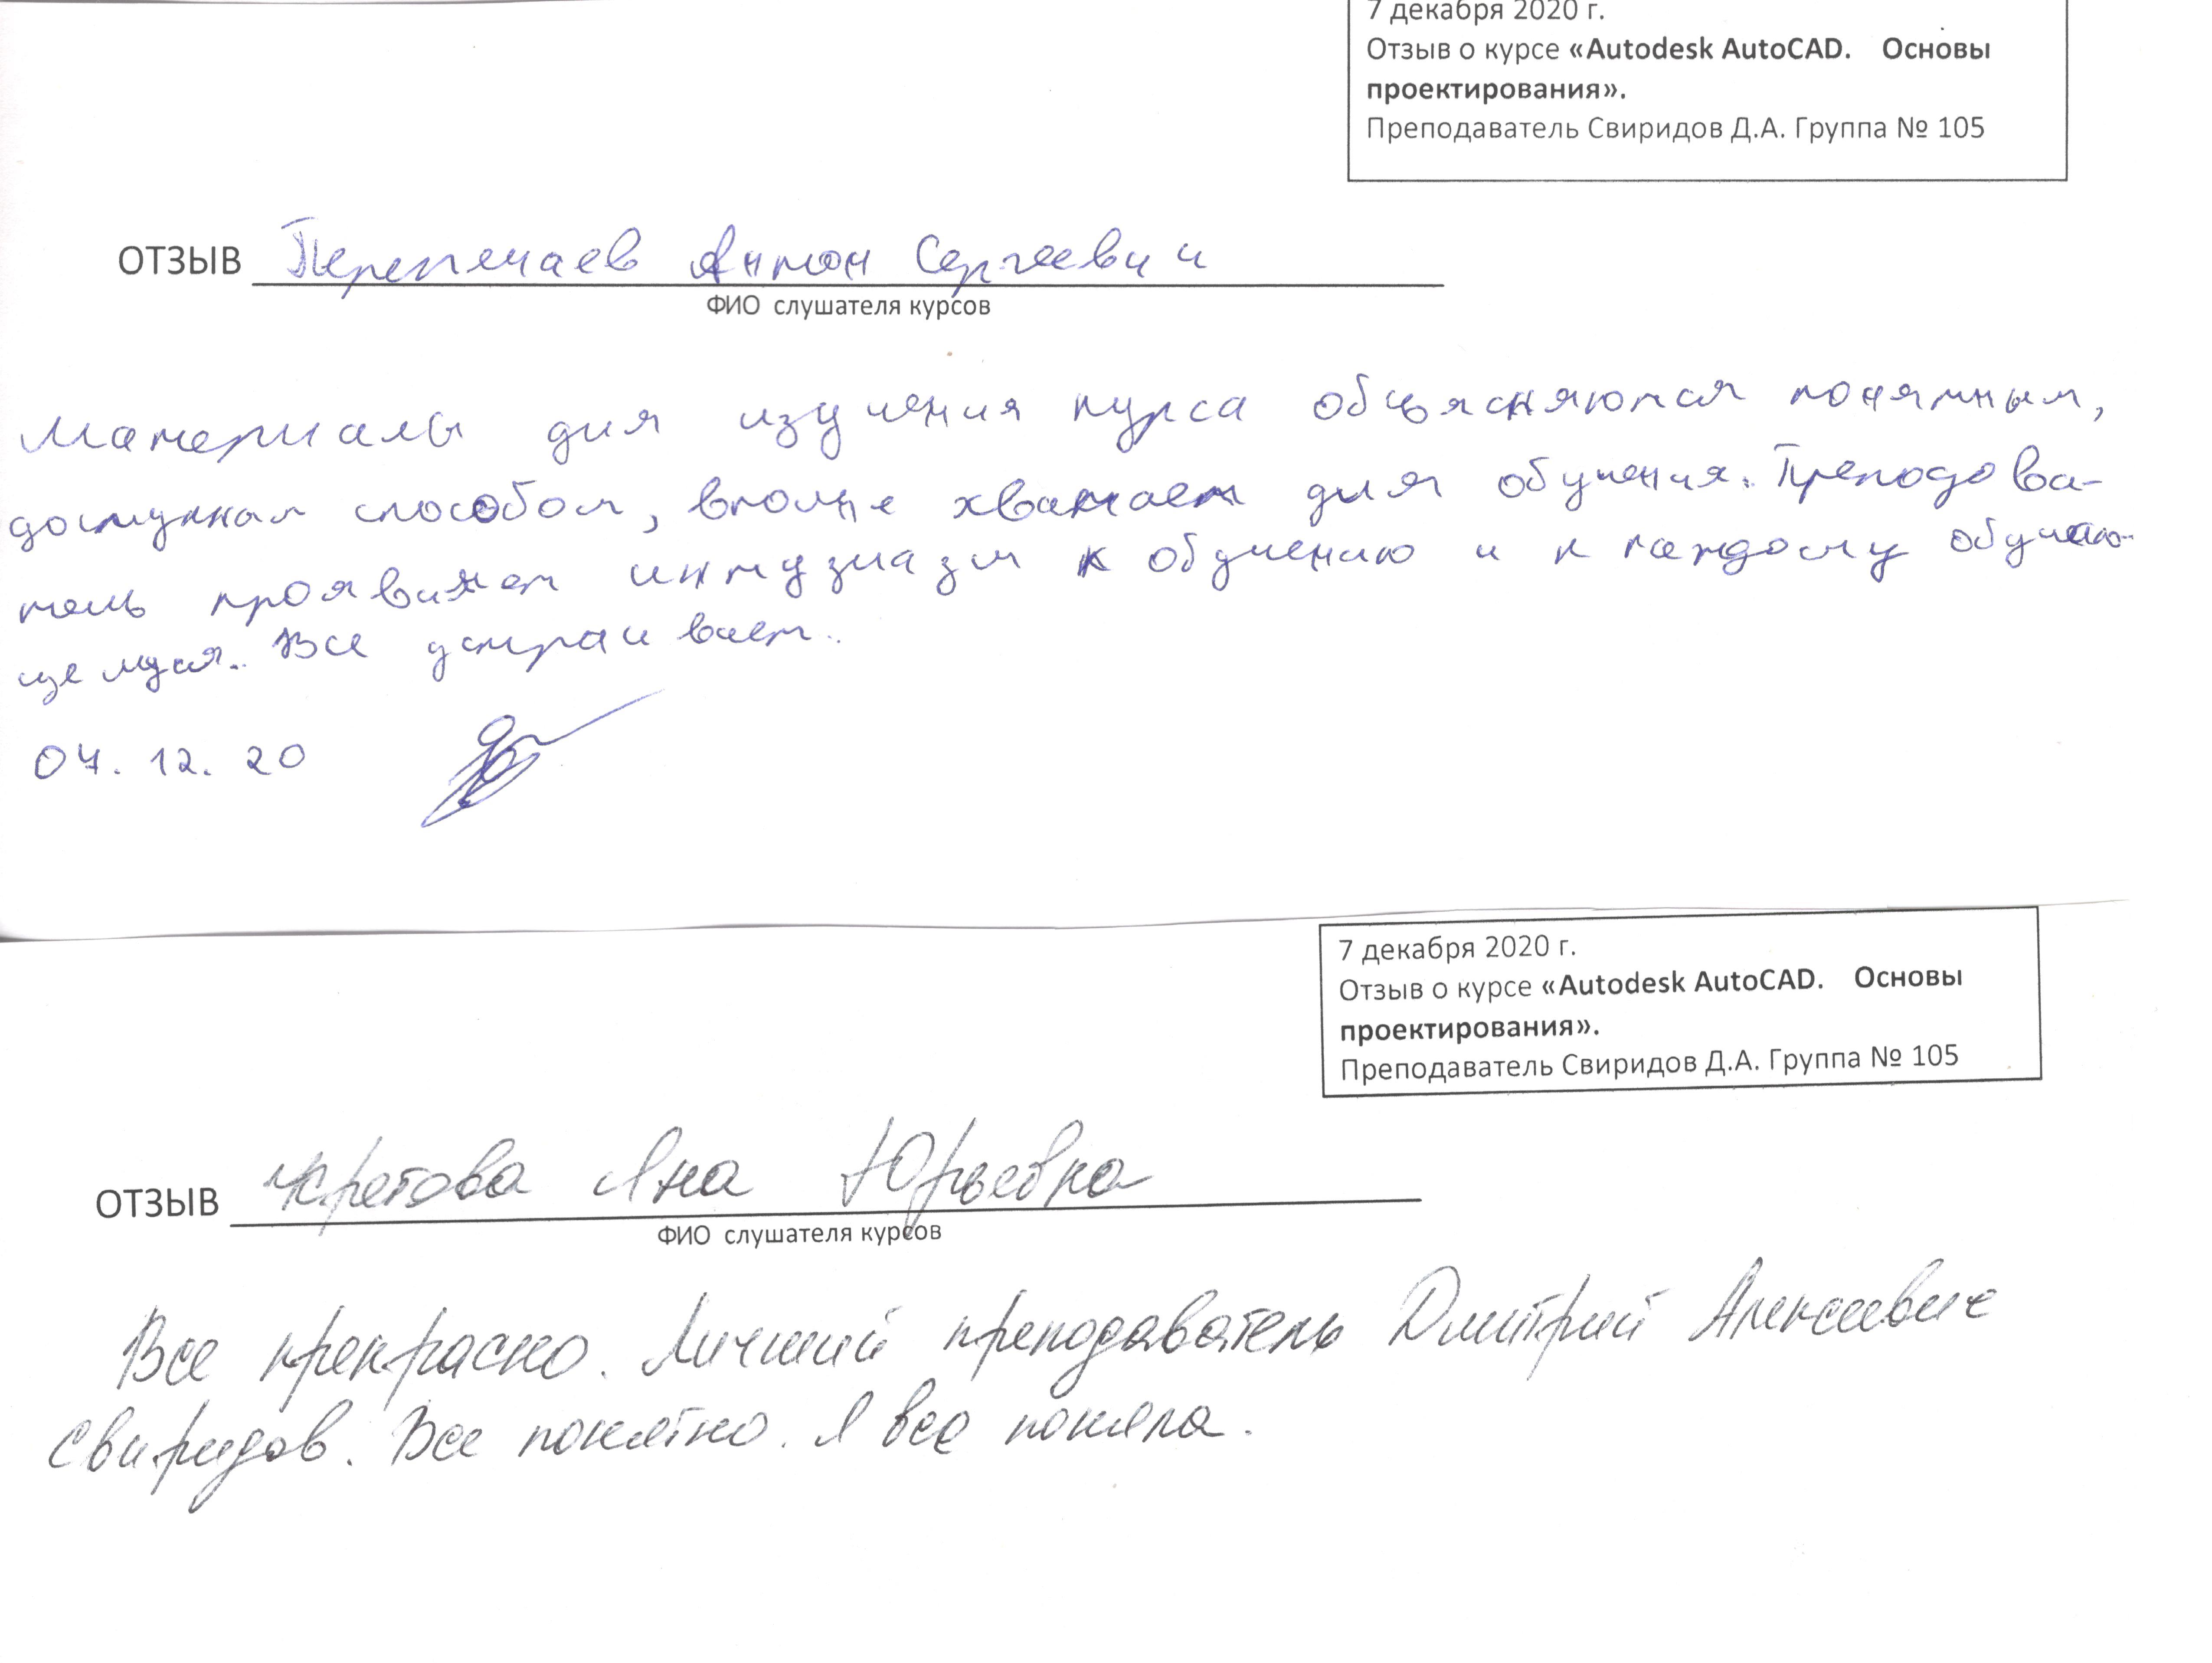 7 декабря 2020 г.
Отзыв о курсе «Autodesk AutoCAD. Основы
проектирования».
Преподаватель Свиридов Д.А. Группа № 105
ОТЗЫВ Перепечаев Антон Сергеевич
ФИО слушателя курсов
Материалы для изучения курса объясняются понятным,
доступным способом, вполне хватает для обучения. Преподова-
тель проявляет интузиазм к обучению и к каждому обучаю-
щемуся. Все устраивает.
07.12.20
7 декабря 2020 г.
Отзыв о курсе «Autodesk AutoCAD. Основы
проектирования».
Преподаватель Свиридов Д.А. Группа № 105
ОТЗЫВ Кретова Яна Юрьевна
ФИО слушателя курсов
Все прекрасно. Лучший преподаватель Дмитрий Алексеевич
Свиридов. Все понятно. Я все поняла.